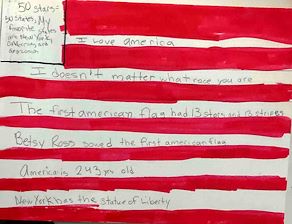 50 stars=
50 states, My
favorite states
are New York,
California, and
Arizona
I love america
I doesn't matter what race you are
The first american flag had 13 stars and 13 stripes
Betsy Ross sowed the first american flag
America is 243 yrs old
New York has the statue of Liberty